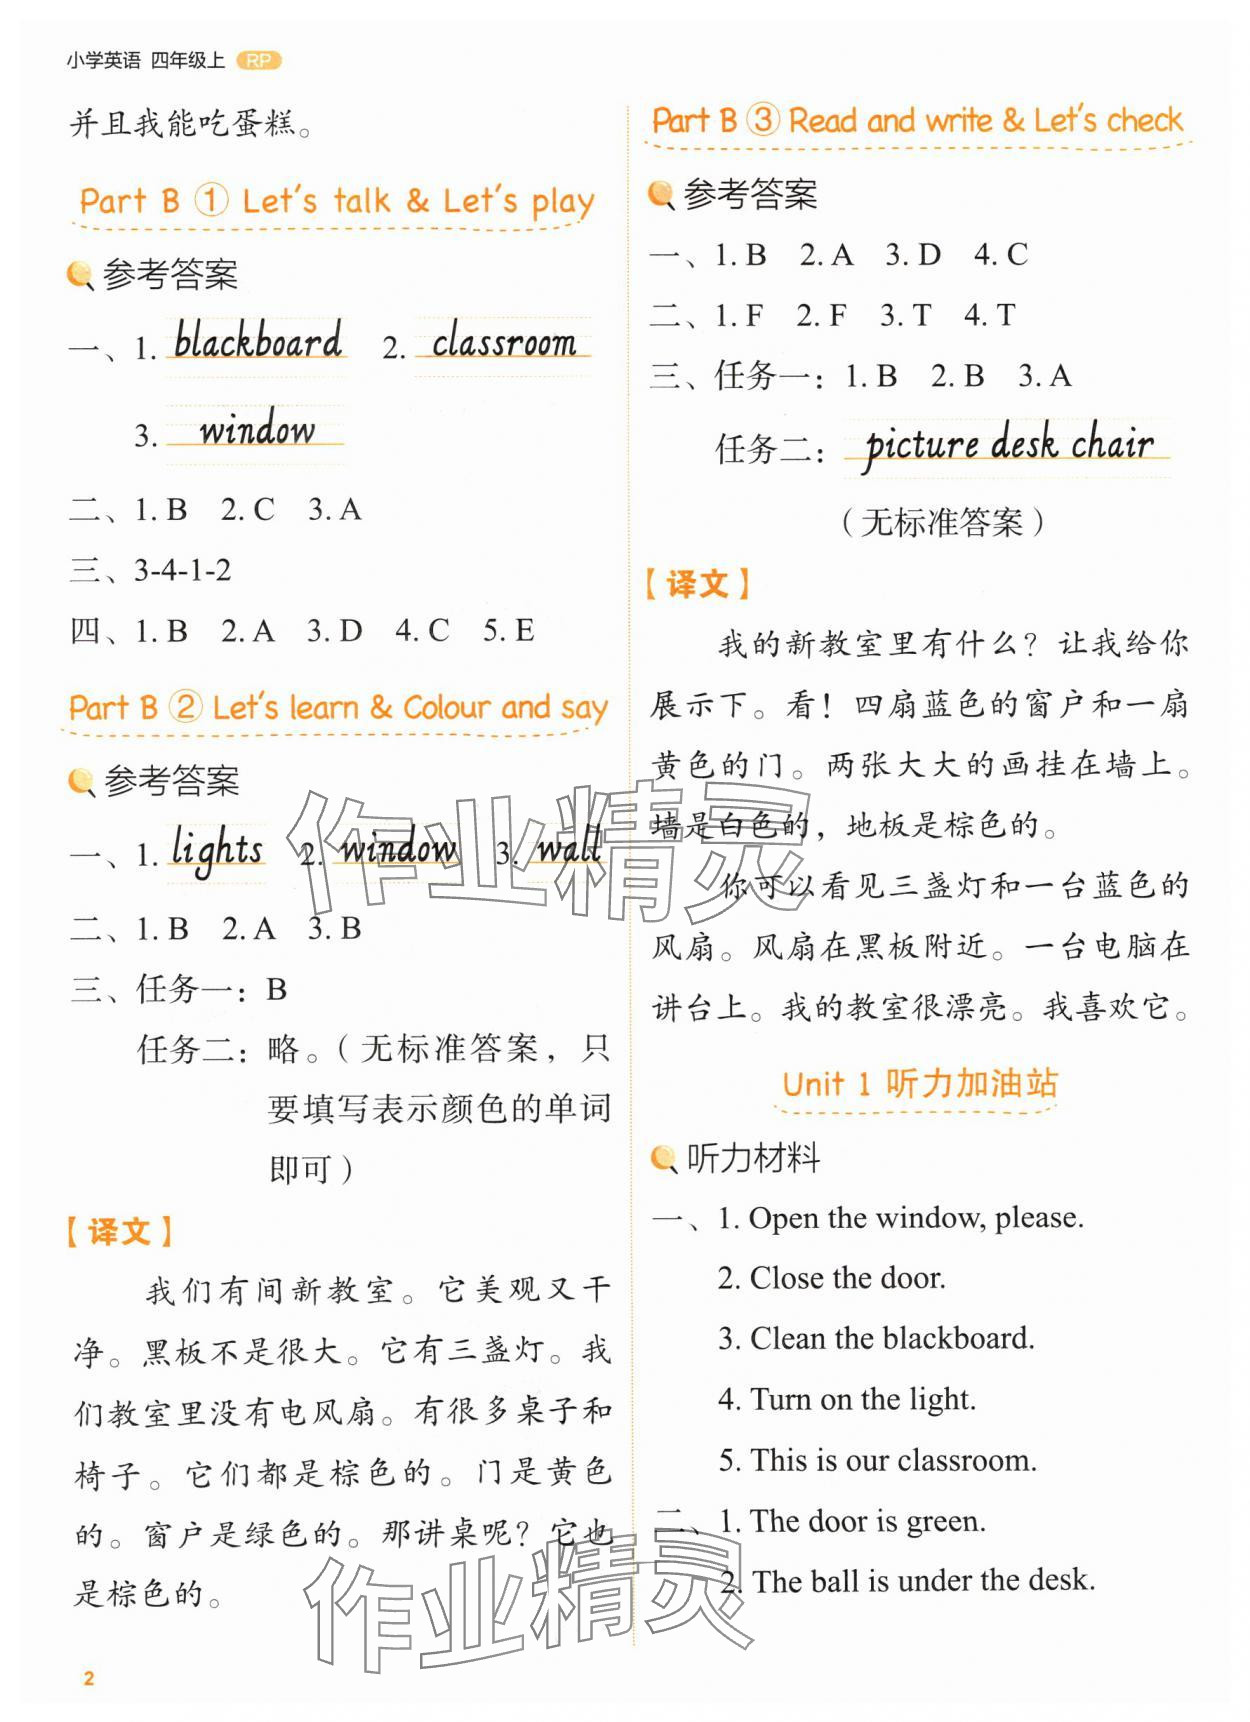 小学英语 四年级上 RP
并且我能吃蛋糕。
Part B ① Let's talk & Let's play
参考答案
一、1. blackboard 2. classroom
3. window
二、1. B 2. C 3. A
三、3-4-1-2
四、1. B 2. A 3. D 4. C 5. E
Part B ② Let's learn & Colour and say
参考答案
一、1. lights 2. window 3. wall
二、1. B 2. A 3. B
三、任务一：B
任务二：略。（无标准答案，只
要填写表示颜色的单词
即可）
【译文】
我们有间新教室。它美观又干
净。黑板不是很大。它有三盏灯。我
们教室里没有电风扇。有很多桌子和
椅子。它们都是棕色的。门是黄色
的。窗户是绿色的。那讲桌呢？它也
是棕色的。
2
Part B ③ Read and write & Let's check
参考答案
一、1. B 2. A 3. D 4. C
二、1. F 2. F 3. T 4. T
三、任务一：1. B 2. B 3. A
任务二：picture desk chair
（无标准答案）
【译文】
我的新教室里有什么？让我给你
展示下。看！四扇蓝色的窗户和一扇
黄色的门。两张大大的画挂在墙上。
墙是白色的，地板是棕色的。
你可以看见三盏灯和一台蓝色的
风扇。风扇在黑板附近。一台电脑在
讲台上。我的教室很漂亮。我喜欢它。
Unit 1 听力加油站
听力材料
一、1. Open the window, please.
2. Close the door.
3. Clean the blackboard.
4. Turn on the light.
5. This is our classroom.
二、1. The door is green.
2. The ball is under the desk.
作业精灵
作业精灵